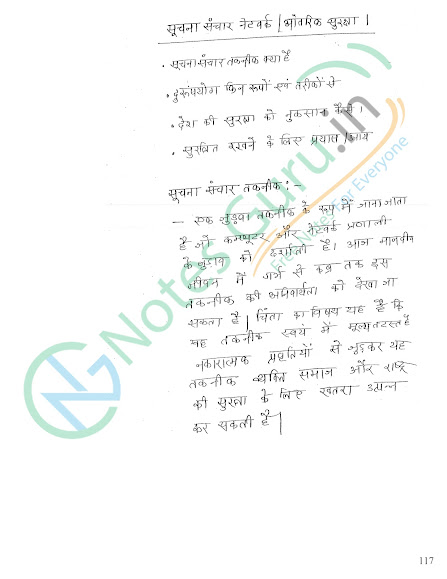 सूचना संचार नेटवर्क / आंतरिक सुरक्षा |
• सूचना संचार तकनीक क्या है
• दुरूपयोग किन रूपों एवं तरीकों से
• देश की सुरक्षा को नुकसान कैसे |
• सुरक्षित रखने के लिए प्रयास /
सूचना संचार तकनीक :-
- एक जुड़वा तकनीक के रूप में जाना जाता
है जो कम्प्यूटर और नेटवर्क प्रणाली
के जुड़ाव को दर्शाती है। आज मानवीय
जीवन में गर्भ से कब्र तक इस
तकनीक की अनिवार्यता को देखा जा
सकता है | चिंता का विषय यह है कि
यह तकनीक स्वयं में मूल्यतटस्त है
नकारात्मक प्रवृतियों से जुड़कर यह
तकनीक व्यक्ति समाज और राष्ट्र
की सुरक्षा के लिए खतरा उत्पन्न
कर सकती है |
NotesGuru.in
Free Notes For Everyone
117